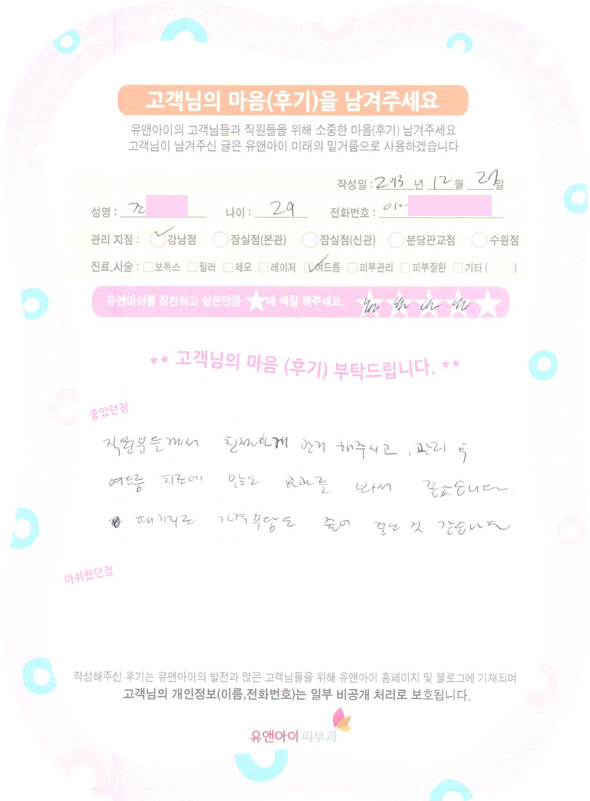 고객님의 마음(후기)을 남겨주세요
유앤아이의 고객님들과 직원들을 위해 소중한 마음(후기) 남겨주세요
고객님이 남겨주신 글은 유앤아이 미래의 밑거름으로 사용하겠습니다
작성일 : 2013 년 12 월 27 일
성명 : 조 나이 : 29 전화번호 : 010-
관리 지점 : 강남점 잠실점(본관) 잠실점(신관) 분당판교점 수원점
진료,시술 : 보톡스 필러 제모 레이저 여드름 피부관리 피부질환 기타 ( )
유앤아이를 칭찬하고 싶은만큼 ★에 색칠 해주세요.
** 고객님의 마음 (후기) 부탁드립니다. **
좋았던점
직원분들께서 친절하게 관리 해주시고, 관리 후
여드름 치료에 많은 효과를 봐서 좋았습니다.
패키지로 가격부담도 줄어 좋은 것 같습니다
아쉬웠던점
작성해주신 후기는 유앤아이의 발전과 많은 고객님들을 위해 유앤아이 홈페이지 및 블로그에 기재되며
고객님의 개인정보(이름,전화번호)는 일부 비공개 처리로 보호됩니다.
유앤아이 피부과